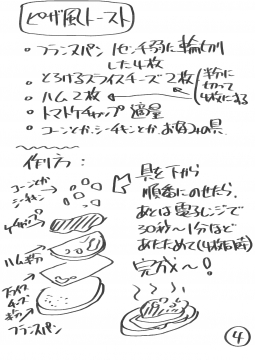 ピザ風トースト
・フランスパン 1センチ弱に輪切りした4枚
・とろけるスライスチーズ 2枚
・ハム 2枚
十字に切って4枚にする
・トマトケチャップ 適量
・コーンとか、シーチキンとか お好みの具
作り方:
コーンとか
シーチキン
ケチャップ
ハム
スライスチーズ
フランスパン
具を下から
順番にのせたら、
あとは電子レンジで
30秒〜1分ほど
あたためて(4枚同時)
完成〜!
4